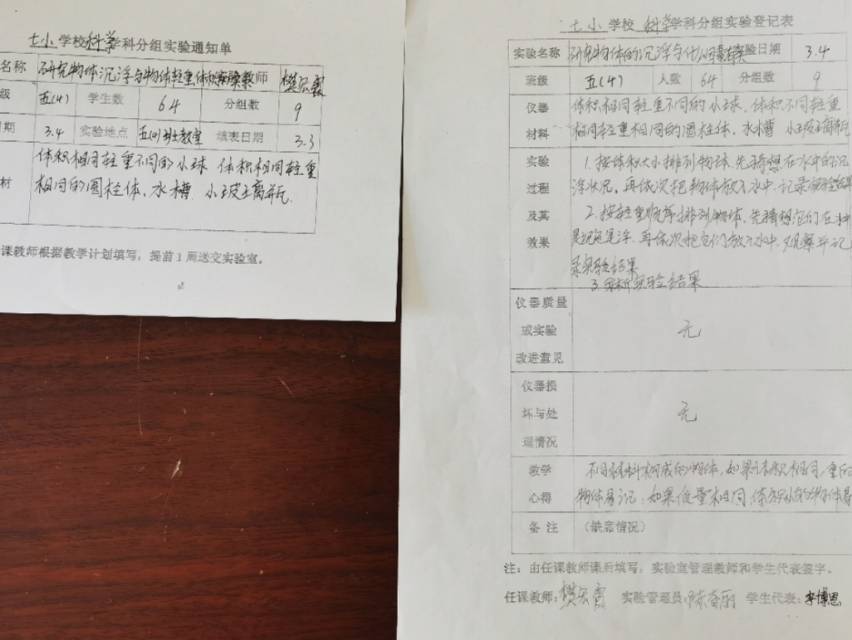 七小学校科学学科分组实验通知单
名称 研究物体沉浮与物体轻重体积 师
级 五(4) 学生数 64 分组数 9
期 3.4 实验地点 五(4)班教室 填表日期 3.3
材 体积相同轻重不同的小球 体积不同轻重
相同的圆柱体、水槽
课教师根据教学计划填写，提前1周送交实验室。
七小学校 科学学科分组实验登记表
实验名称 研究物体的沉浮与什么 验日期 3.4
班级 五(4) 人数 64 分组数 9
仪器 体积相同轻重不同的小球、体积不同轻重
材料 相同的圆柱体、水槽
实验 1.按体积大小排列物体，先猜想在水中的沉
过程 浮状况，再依次把物体放入水中，记录
及其 2.按轻重顺序排列物体，先猜想它们在水中
效果 是沉还是浮，再依次把它们放入水中，观察并记
录实验结果
3. 实验结果
仪器质量
或实验 无
改进意见
仪器损
坏与处 无
理情况
教学 不同材料构成的物体，如果体积相同，重的
心得 物体易沉；如果质量相同，体积小的物体易
备注 （缺席情况）
注：由任课教师课后填写，实验室管理教师和学生代表签字。
任课教师： 实验管理员： 学生代表：李博恩